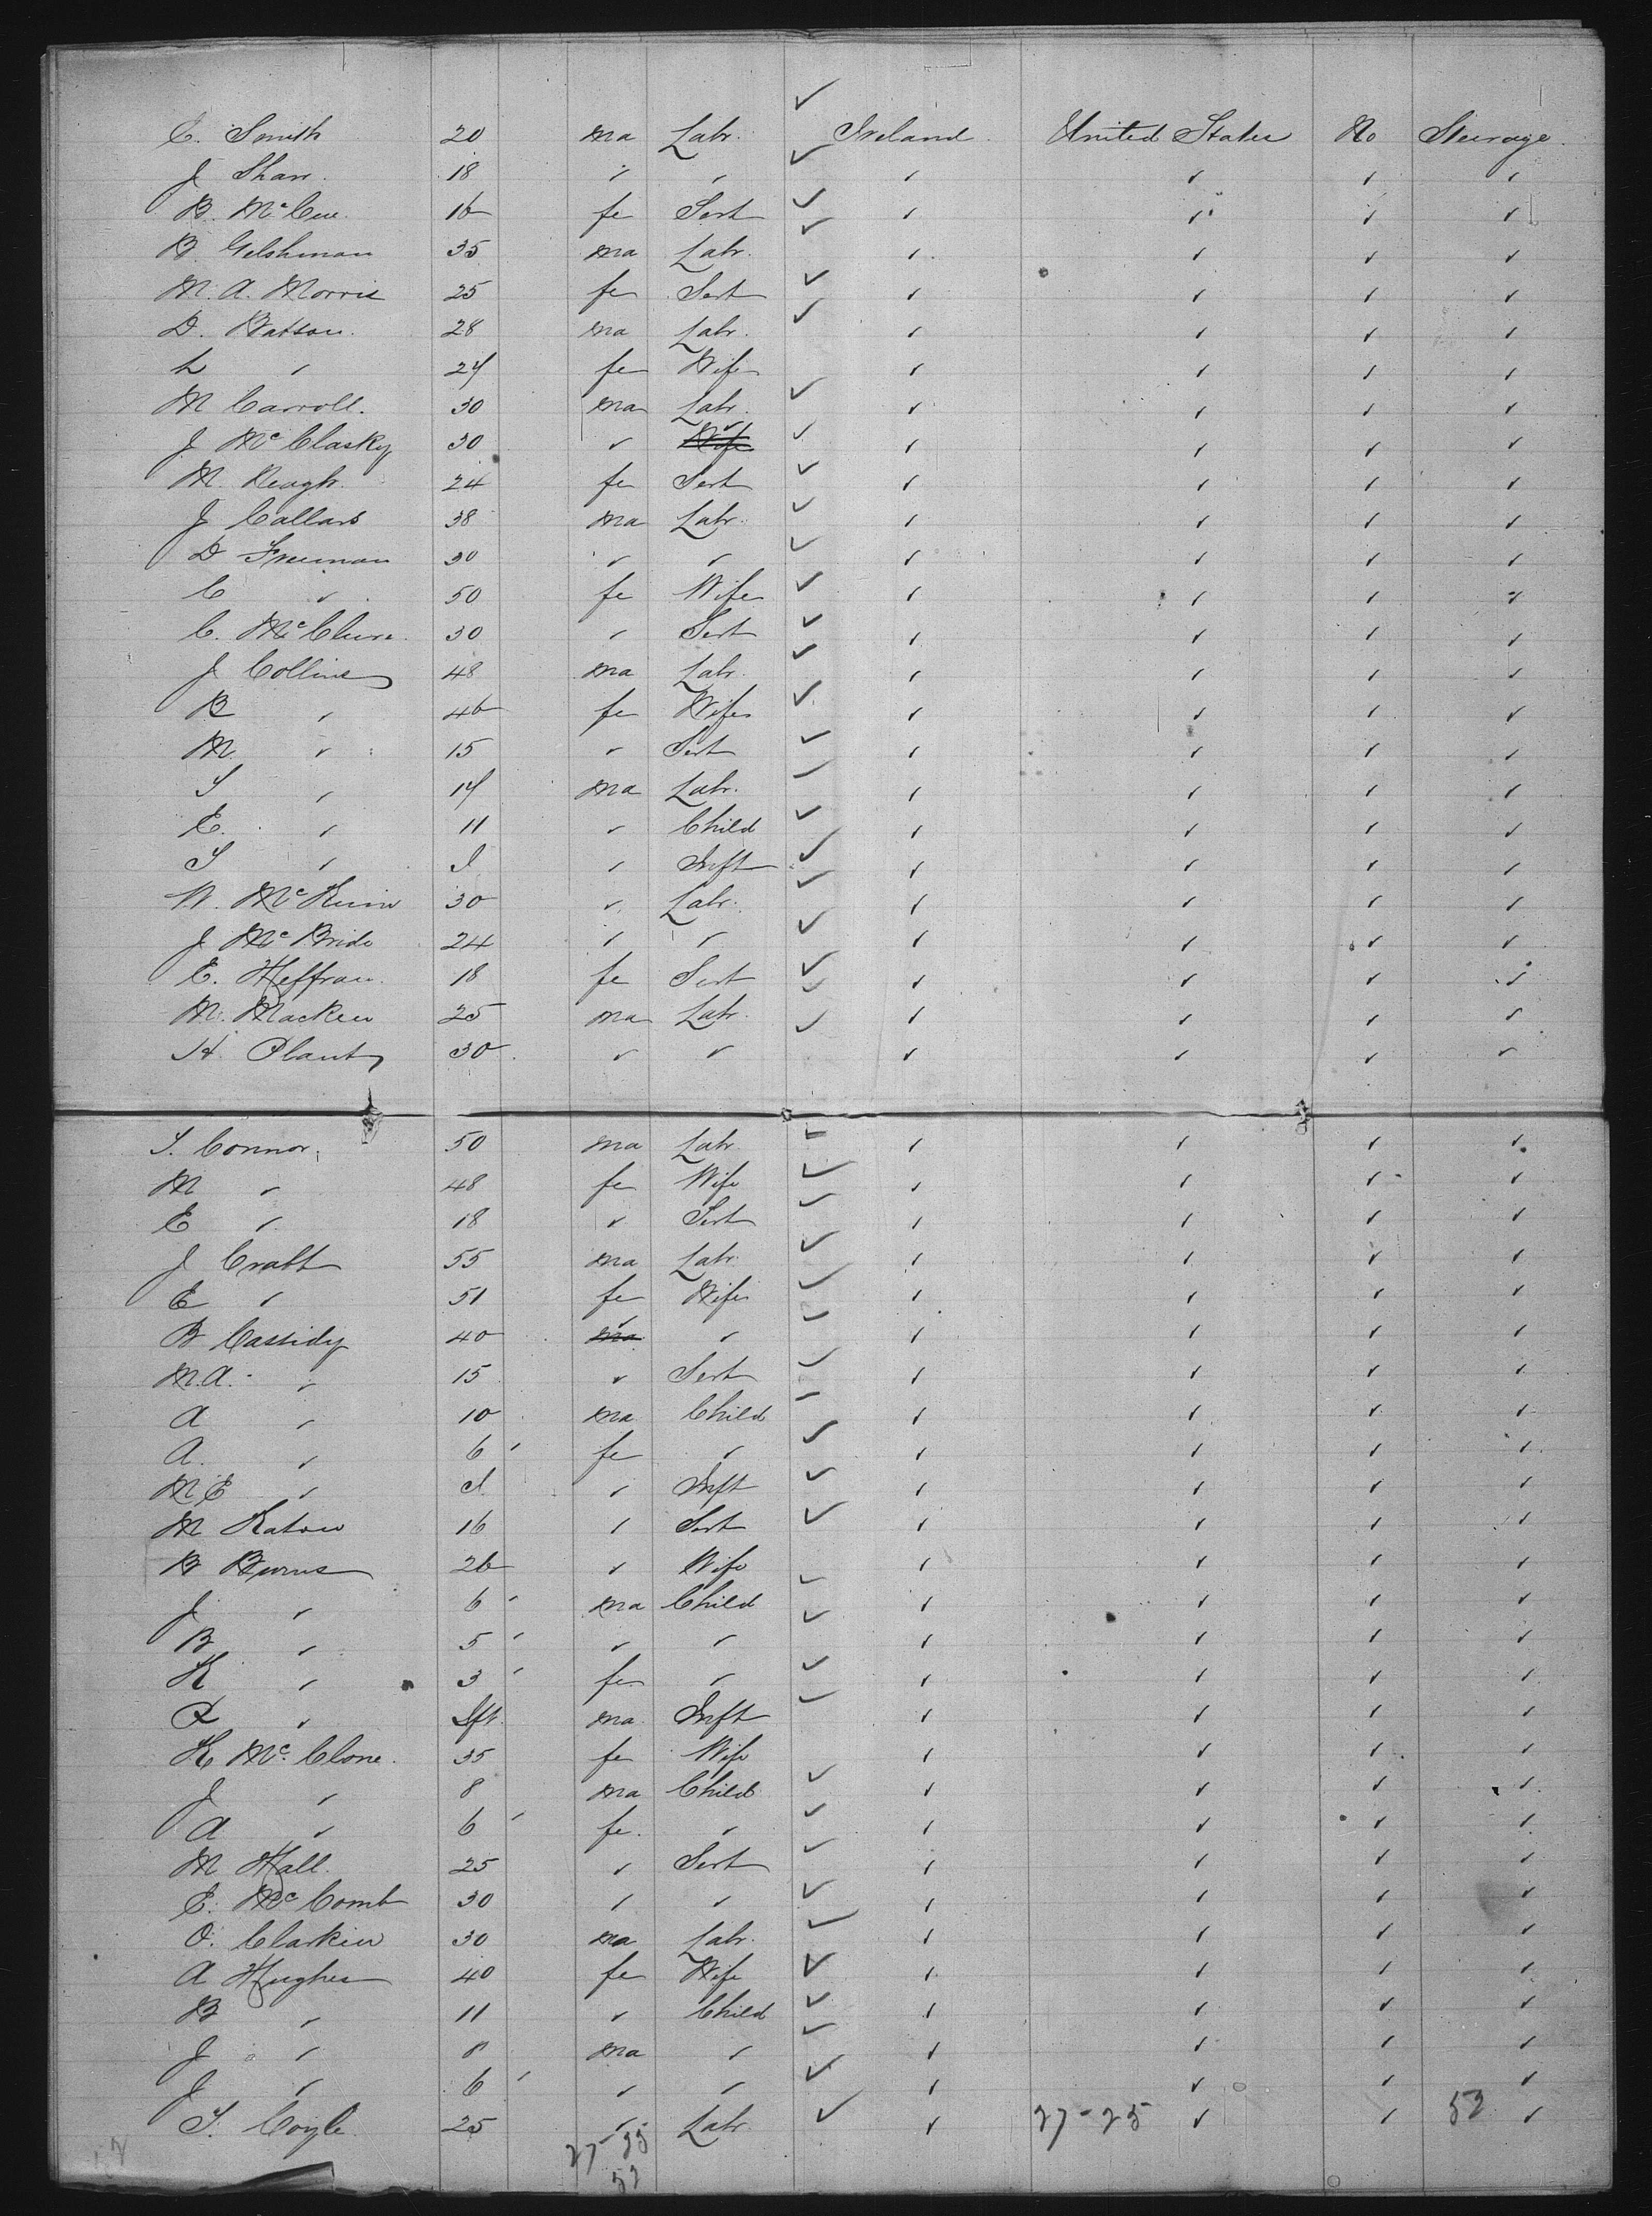 C. Smith 20 ma Labr. ✓ Ireland United States No Steerage
J Shan. 18 " " ✓ " " " "
B. McCue. 16 fe Sert ✓ " " " "
B Gelshinan 35 ma Labr. ✓ " " " "
M. A. Morris 25 fe Sert ✓ " " " "
D. Batson. 28 ma Labr. ✓ " " " "
L " 24 fe Wife " " " "
M Carroll. 30 ma Labr. ✓ " " " "
J McClasky 30 " " ✓ " " " "
M. Keogh. 24 fe Sert ✓ " " " "
J Callan 38 ma Labr. ✓ " " " "
D Freeman 30 " " ✓ " " " "
C " 50 fe Wife ✓ " " " "
C. McClure. 30 " Sert ✓ " " " "
J Collins 48 ma Labr. ✓ " " " "
B " 46 fe Wife ✓ " " " "
M. " 15 " Sert ✓ " " " "
S " 14 ma Labr. ✓ " " " "
E. " 11 " Child ✓ " " " "
S " I " Inft ✓ " " " "
W. Mc 30 " Labr. ✓ " " " "
J McBride 24 " " ✓ " " " "
E. Heffran. 18 fe Sert ✓ " " " "
M. Macken 25 ma Labr. ✓ " " " "
H. Plant 30 " " ✓ " " " "
S. Connor. 50 ma Labr ✓ " " " "
M " 48 fe Wife ✓ " " " "
E " 18 " Sert ✓ " " " "
J Crabt 55 ma Labr. ✓ " " " "
E " 51 fe Wife ✓ " " " "
B Cassidy 40 " " ✓ " " " "
M.A. " 15 " Sert ✓ " " " "
A " 10 ma Child ✓ " " " "
A. " 6 fe " ✓ " " " "
M E " I " Inft ✓ " " " "
M Katon 16 " Sert ✓ " " " "
B Burns 26 " Wife " " " "
J " 6 ma Child ✓ " " " "
B " 5 " " ✓ " " " "
K " 3 fe " ✓ " " " "
P " Ift. ma. Inft ✓ " " " "
K McClone. 35 fe Wife " " " "
J " 8 ma Child ✓ " " " "
A " 6 fe. " ✓ " " " "
M Hall. 25 " Sert ✓ " " " "
E. McComb 30 " " ✓ " " " "
O. Clarkin 30 ma Labr. ✓ " " " "
A Hughes 40 fe Wife ✓ " " " "
B " 11 " Child ✓ " " " "
J " 8 ma " ✓ " " " "
J " 6 " " ✓ " " " "
S. Coyle. 25 " Labr ✓ " 27-25 " " 52 "
27-25
52